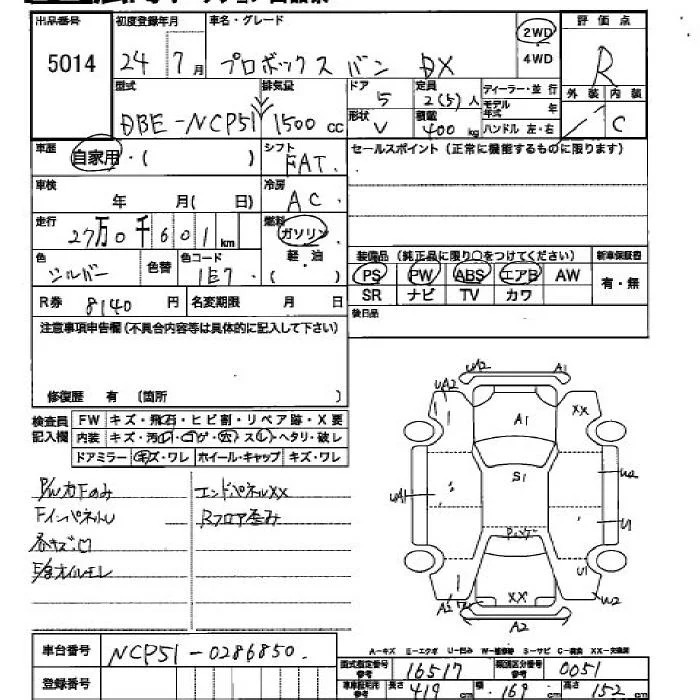 出品番号 初度登録年月 車名・グレード 評価点
5014 24年 7月 プロボックス バン DX 2WD 4WD R
型式 排気量 ドア 定員 ディーラー・並行 外装 内装
5 2(5)人 モデル年式 年 C
DBE-NCP51 1500cc 形状 V 積載 400kg ハンドル 左・右
車歴 自家用・( ) シフト FAT セールスポイント(正常に機能するものに限ります)
車検 年 月( 日) 冷房 AC
走行 27万0千601km 燃料 ガソリン 軽油
色 シルバー 色替 色コード 1E7 装備品(純正品に限り○をつけてください) 新車保証書
PS PW ABS エアB AW 有・無
R券 8140円 名変期限 月 日 SR ナビ TV カワ
注意事項申告欄(不具合内容等は具体的に記入して下さい) 後日品
修復歴 有 (箇所 )
検査員記入欄 FW キズ・飛石・ヒビ割・リペア跡・X要
内装 キズ・汚レ・コゲ・穴・スレ・ヘタリ・破レ
ドアミラー キズ・ワレ ホイール・キャップ キズ・ワレ
UA2 A1
UA2 XX
A1
S1 U2
UA1
P/Wカギのみ エンドパネルXX
FインパネルU Rフロア歪み U1
各キズ凹 U1
XX U2
A2
A2
車台番号 NCP51-0286850 A-キズ E-エクボ U-凹み W-補修跡 S-サビ C-腐食 XX-交換済
登録番号 型式指定番号 参考 16517 類別区分番号 参考 0051
長さ 419cm 幅 169cm 高さ 152cm